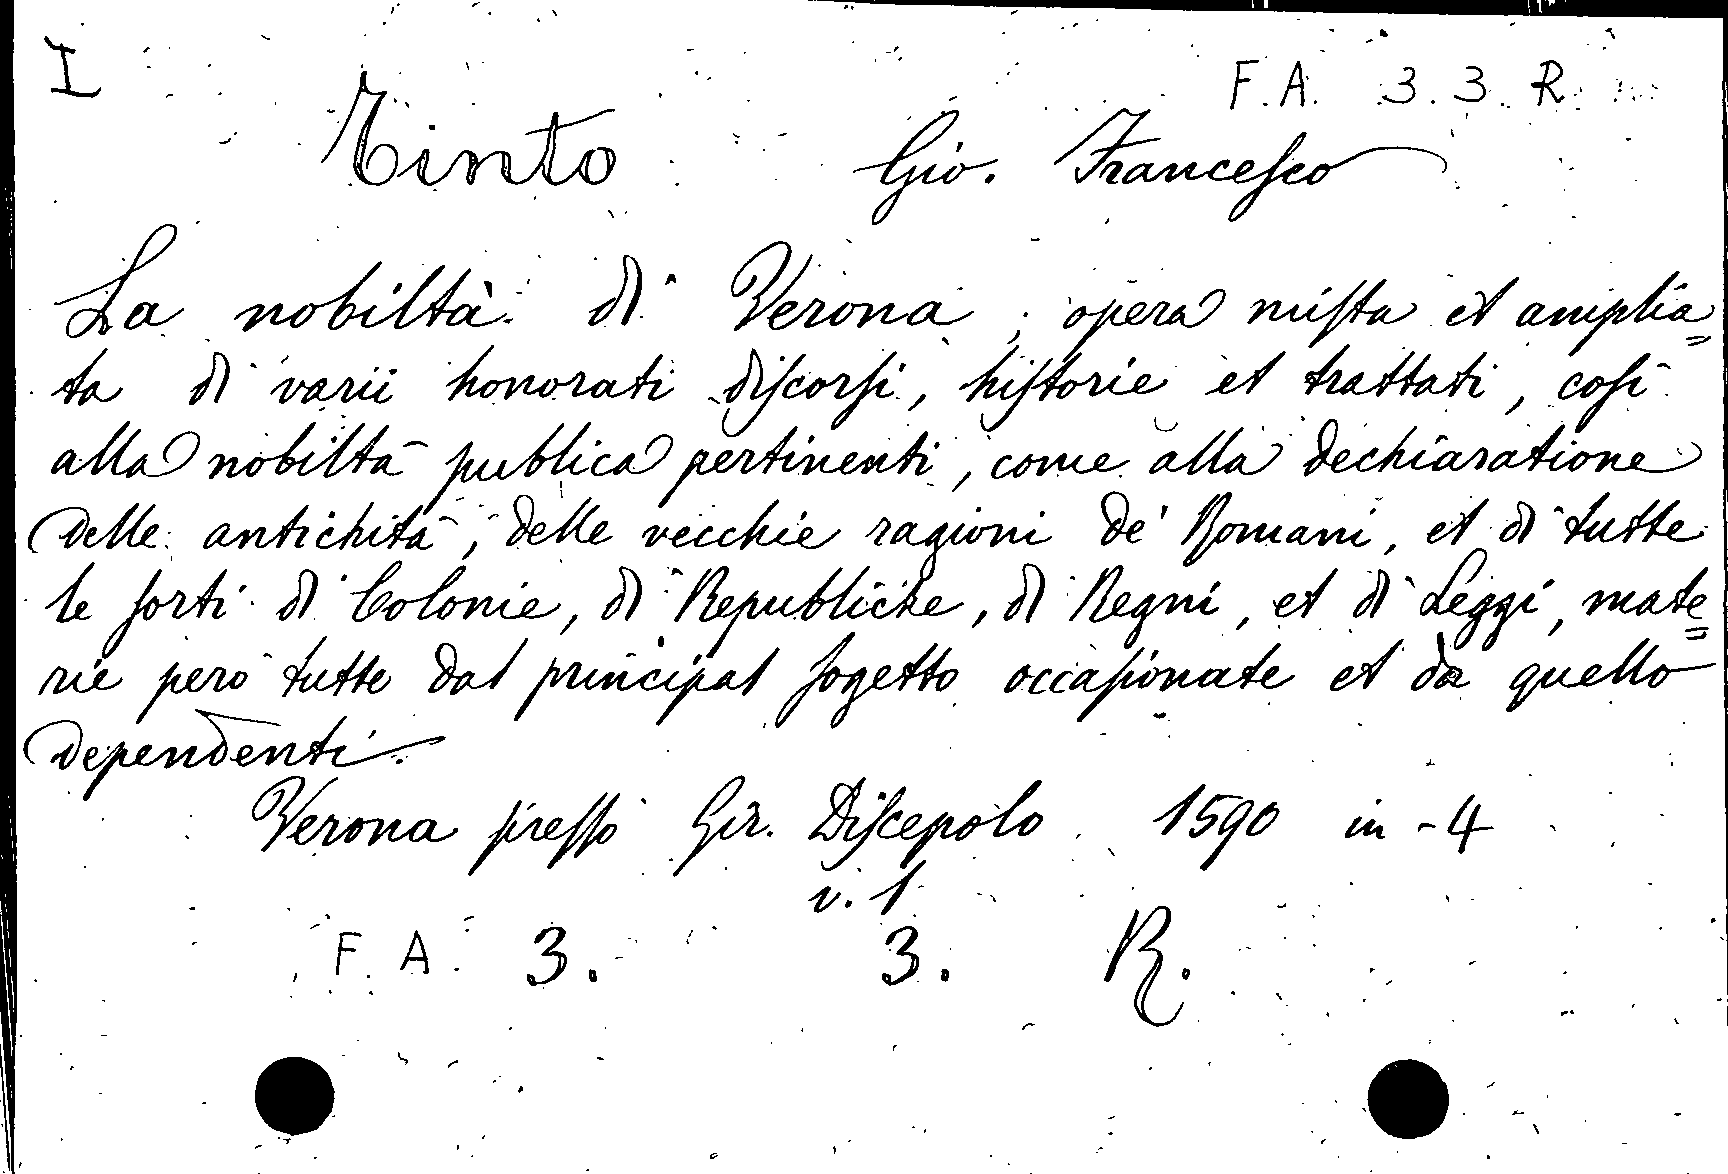 I
F.A. 3.3.R.
Tinto Gio. Francesco
La nobiltà di Verona; opera mista et amplia=
ta di varii honorati discorsi, historie et trattati, così
alla nobiltà publica pertinenti, come alla dechiaratione
delle antichità, delle vecchie ragioni de' Romani, et di tutte
le sorti di Colonie, di Republiche, di Regni, et di Leggi, mate=
rie però tutte dal principal sogetto occasionate et da quello
dependenti.
Verona presso Gir. Discepolo 1590 in-4
v. 1
F. A. 3. 3. R.